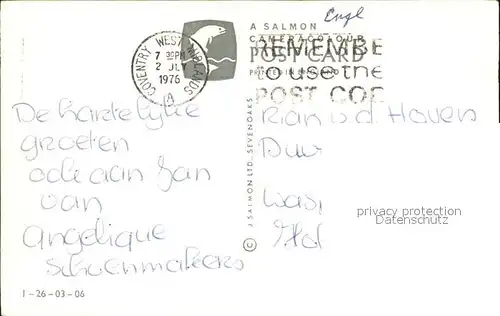 Engl
A SALMON
CAMERACOLOUR
POST CARD
PRINTED IN ENGLAND
REMEMBE
to use the
POST COD
COVENTRY WEST MIDLANDS
7 30PM
2 JLY
1976
A
© J. SALMON LTD. SEVENOAKS
De hartelijke
groeten
ook aan Jan
van
Angelique
Schoenmakers
Rian v d Hoven
privacy protection
Datenschutz
1-26-03-06